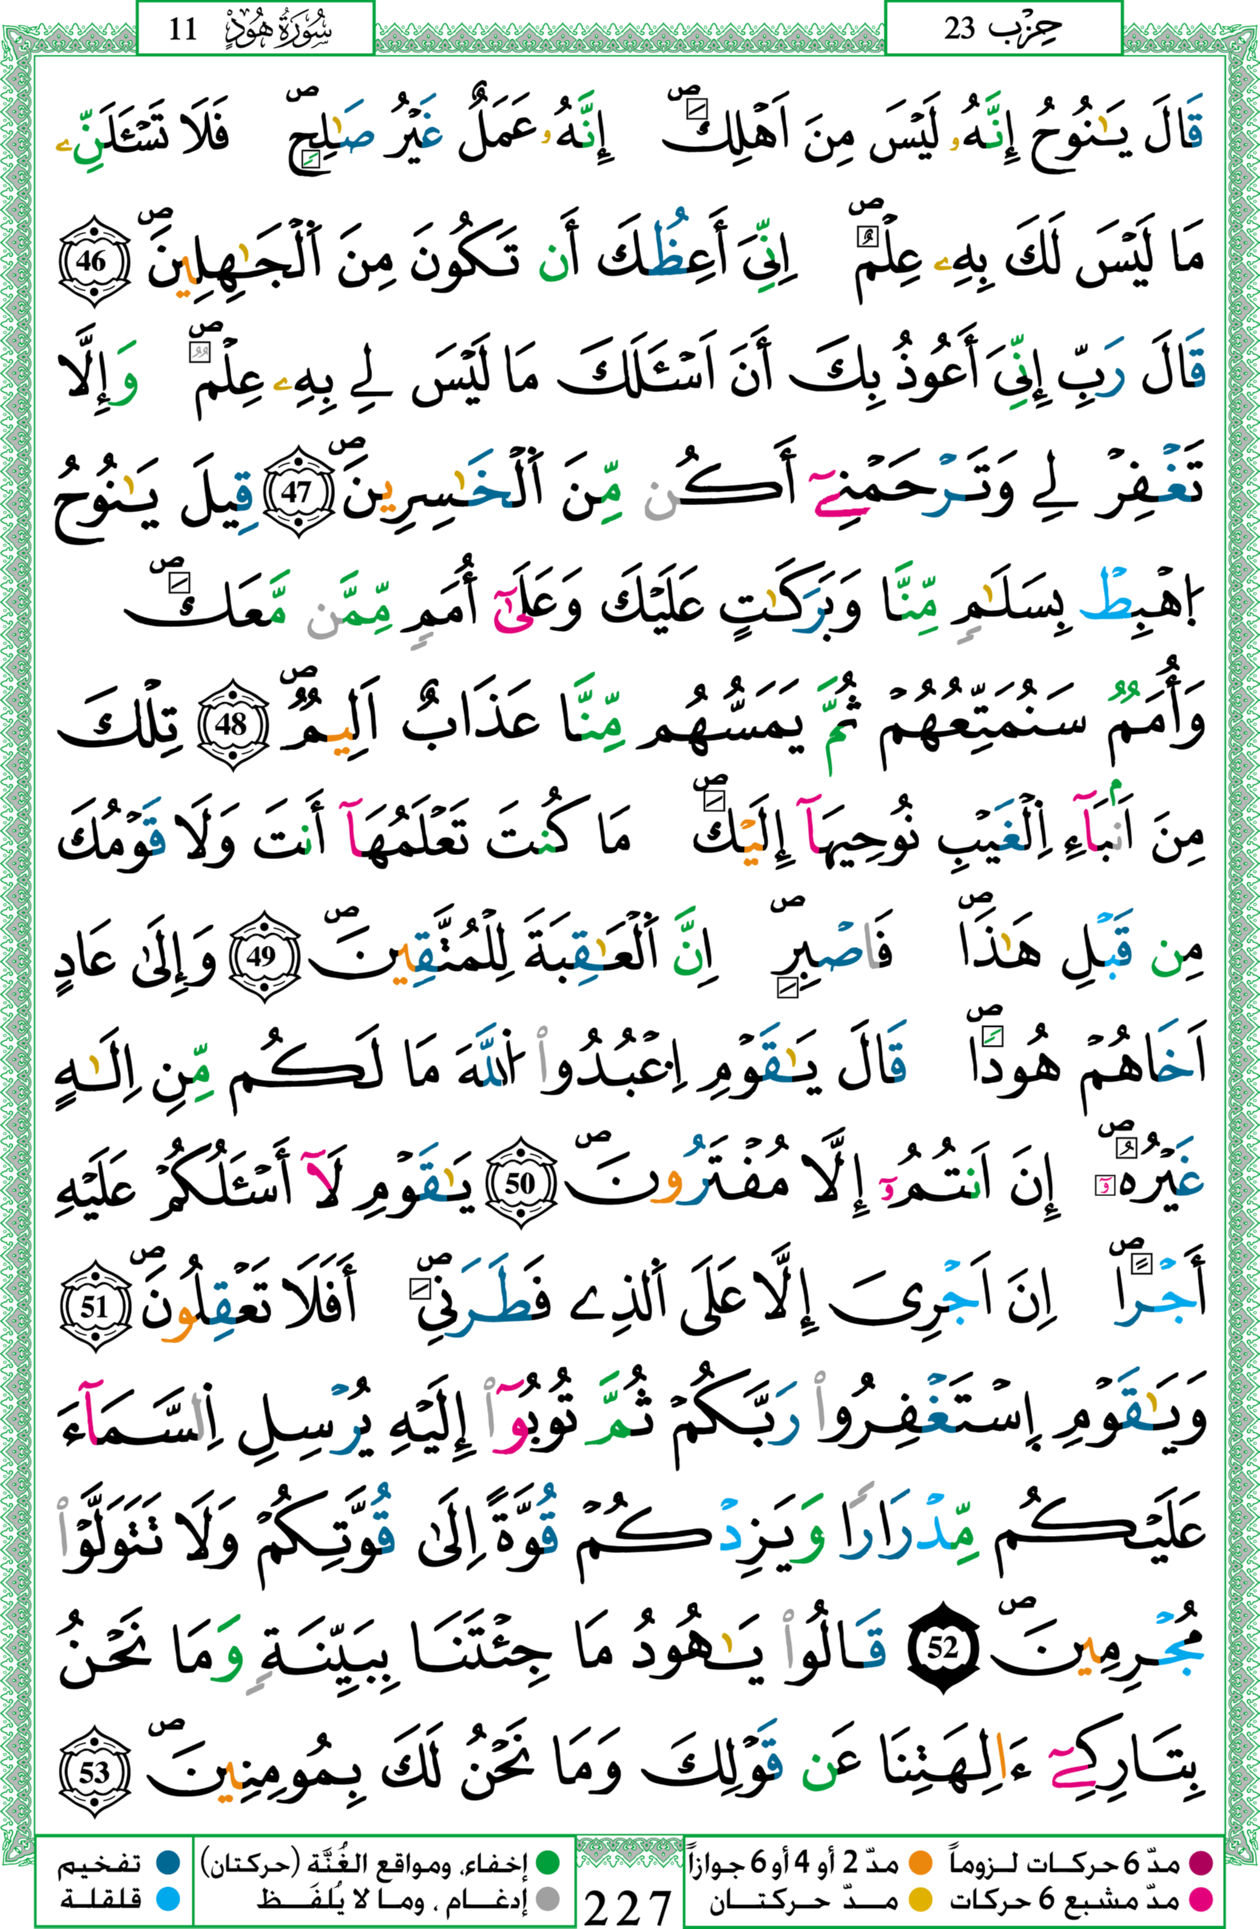 حِزْب 23
سُورَةُ هُودٍ 11
قَالَ يَٰنُوحُ إِنَّهُۥ لَيْسَ مِنَ اَهْلِكَۖ إِنَّهُۥ عَمَلٌ غَيْرُ صَٰلِحٖۖ فَلَا تَسْـَٔلَنِّے
مَا لَيْسَ لَكَ بِهِۦ عِلْمٌۖ اِنِّىَ أَعِظُكَ أَن تَكُونَ مِنَ اَ۬لْجَٰهِلِينَۖ 46
قَالَ رَبِّ إِنِّىَ أَعُوذُ بِكَ أَنَ اَسْـَٔلَكَ مَا لَيْسَ لِے بِهِۦ عِلْمٞۖ وَإِلَّا
تَغْفِرْ لِے وَتَرْحَمْنِےٓ أَكُن مِّنَ اَ۬لْخَٰسِرِينَۖ 47 قِيلَ يَٰنُوحُ
اُ۪هْبِطْ بِسَلَٰمٖ مِّنَّا وَبَرَكَٰتٍ عَلَيْكَ وَعَلَىٰٓ أُمَمٖ مِّمَّن مَّعَكَۖ
وَأُمَمٞ سَنُمَتِّعُهُمْ ثُمَّ يَمَسُّهُم مِّنَّا عَذَابٌ اَلِيمٞۖ 48 تِلْكَ
مِنَ اَنۢبَآءِ اِ۬لْغَيْبِ نُوحِيهَآ إِلَيْكَۖ مَا كُنتَ تَعْلَمُهَآ أَنتَ وَلَا قَوْمُكَ
مِن قَبْلِ هَٰذَاۖ فَاصْبِرِۖ اِنَّ اَ۬لْعَٰقِبَةَ لِلْمُتَّقِينَۖ 49 وَإِلَىٰ عَادٍ
اَخَاهُمْ هُودٗاۖ قَالَ يَٰقَوْمِ اِ۟عْبُدُواْ اُ۬للَّهَ مَا لَكُم مِّنِ اِلَٰهٍ
غَيْرُهُۥٓۖ إِنَ اَنتُمُۥٓ إِلَّا مُفْتَرُونَۖ 50 يَٰقَوْمِ لَآ أَسْـَٔلُكُمْ عَلَيْهِ
أَجْراًۖ اِنَ اَجْرِىَ إِلَّا عَلَى اَ۬لذِے فَطَرَنِيۖ أَفَلَا تَعْقِلُونَۖ 51
وَيَٰقَوْمِ اِ۪سْتَغْفِرُواْ رَبَّكُمْ ثُمَّ تُوبُوٓاْ إِلَيْهِ يُرْسِلِ اِ۬لسَّمَآءَ
عَلَيْكُم مِّدْرَارٗا وَيَزِدْكُمْ قُوَّةً اِلَىٰ قُوَّتِكُمْ وَلَا تَتَوَلَّوْاْ
مُجْرِمِينَۖ 52 قَالُواْ يَٰهُودُ مَا جِئْتَنَا بِبَيِّنَةٖ وَمَا نَحْنُ
بِتَارِكِےٓ ءَالِهَتِنَا عَن قَوْلِكَ وَمَا نَحْنُ لَكَ بِمُومِنِينَۖ 53
مدّ 6 حركات لـزومـاً
مدّ 2 أو 4 أو 6 جوازاً
إخفاء، ومواقع الغُنَّة (حركتان)
تفخيم
مدّ مشبع 6 حركات
مــدّ حـركـتــان
إدغـام ، ومـا لا يُلفَـظ
قلقلة
227